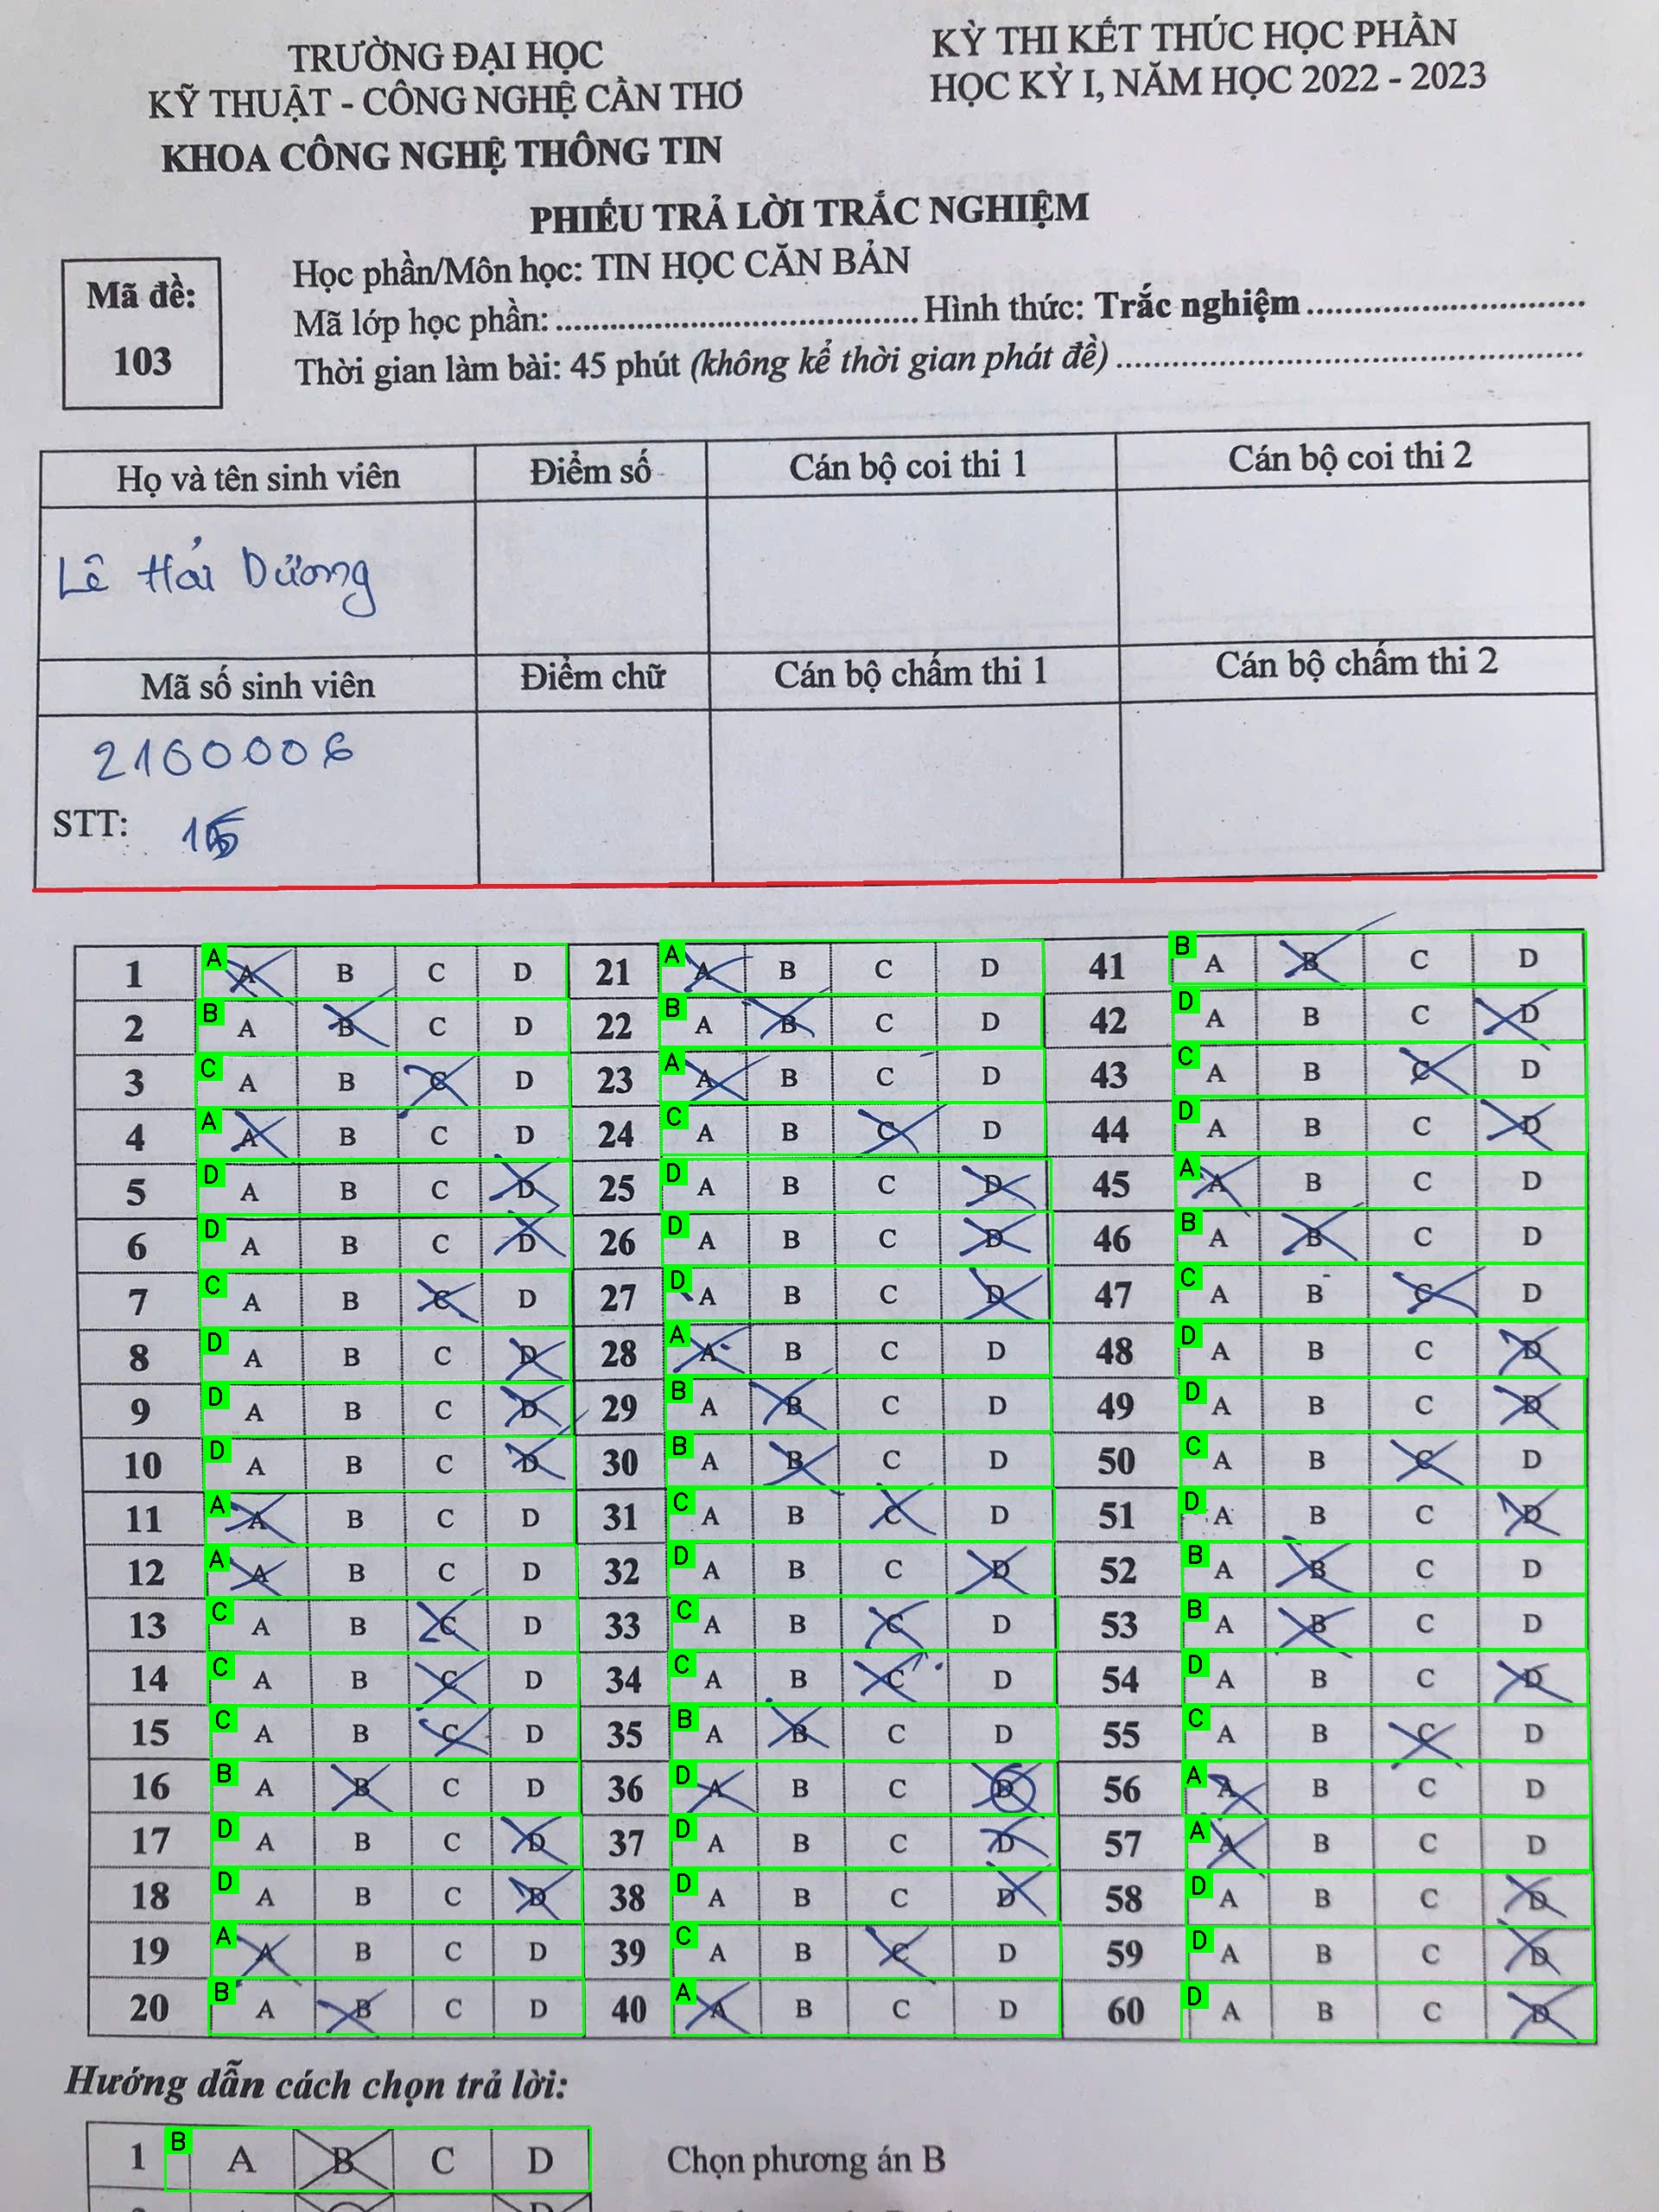 TRƯỜNG ĐẠI HỌC
KỸ THUẬT - CÔNG NGHỆ CẦN THƠ
KHOA CÔNG NGHỆ THÔNG TIN
KỲ THI KẾT THÚC HỌC PHẦN
HỌC KỲ I, NĂM HỌC 2022 - 2023
PHIẾU TRẢ LỜI TRẮC NGHIỆM
Mã đề:
103
Học phần/Môn học: TIN HỌC CĂN BẢN
Mã lớp học phần: ........................................ Hình thức: Trắc nghiệm ..............................
Thời gian làm bài: 45 phút (không kể thời gian phát đề) ..................................................
Họ và tên sinh viên Điểm số Cán bộ coi thi 1 Cán bộ coi thi 2
Lê Hải Dương
Mã số sinh viên Điểm chữ Cán bộ chấm thi 1 Cán bộ chấm thi 2
2100006
STT: 15
1 A A B C D 21 A A B C D 41 B A B C D
2 B A B C D 22 B A B C D 42 D A B C D
3 C A B C D 23 A A B C D 43 C A B C D
4 A A B C D 24 C A B C D 44 D A B C D
5 D A B C D 25 D A B C D 45 A A B C D
6 D A B C D 26 D A B C D 46 B A B C D
7 C A B C D 27 D A B C D 47 C A B C D
8 D A B C D 28 A A B C D 48 D A B C D
9 D A B C D 29 B A B C D 49 D A B C D
10 D A B C D 30 B A B C D 50 C A B C D
11 A A B C D 31 C A B C D 51 D A B C D
12 A A B C D 32 D A B C D 52 B A B C D
13 C A B C D 33 C A B C D 53 B A B C D
14 C A B C D 34 C A B C D 54 D A B C D
15 C A B C D 35 B A B C D 55 C A B C D
16 B A B C D 36 D A B C D 56 A A B C D
17 D A B C D 37 D A B C D 57 A A B C D
18 D A B C D 38 D A B C D 58 D A B C D
19 A A B C D 39 C A B C D 59 D A B C D
20 B A B C D 40 A A B C D 60 D A B C D
Hướng dẫn cách chọn trả lời:
1 B A B C D Chọn phương án B